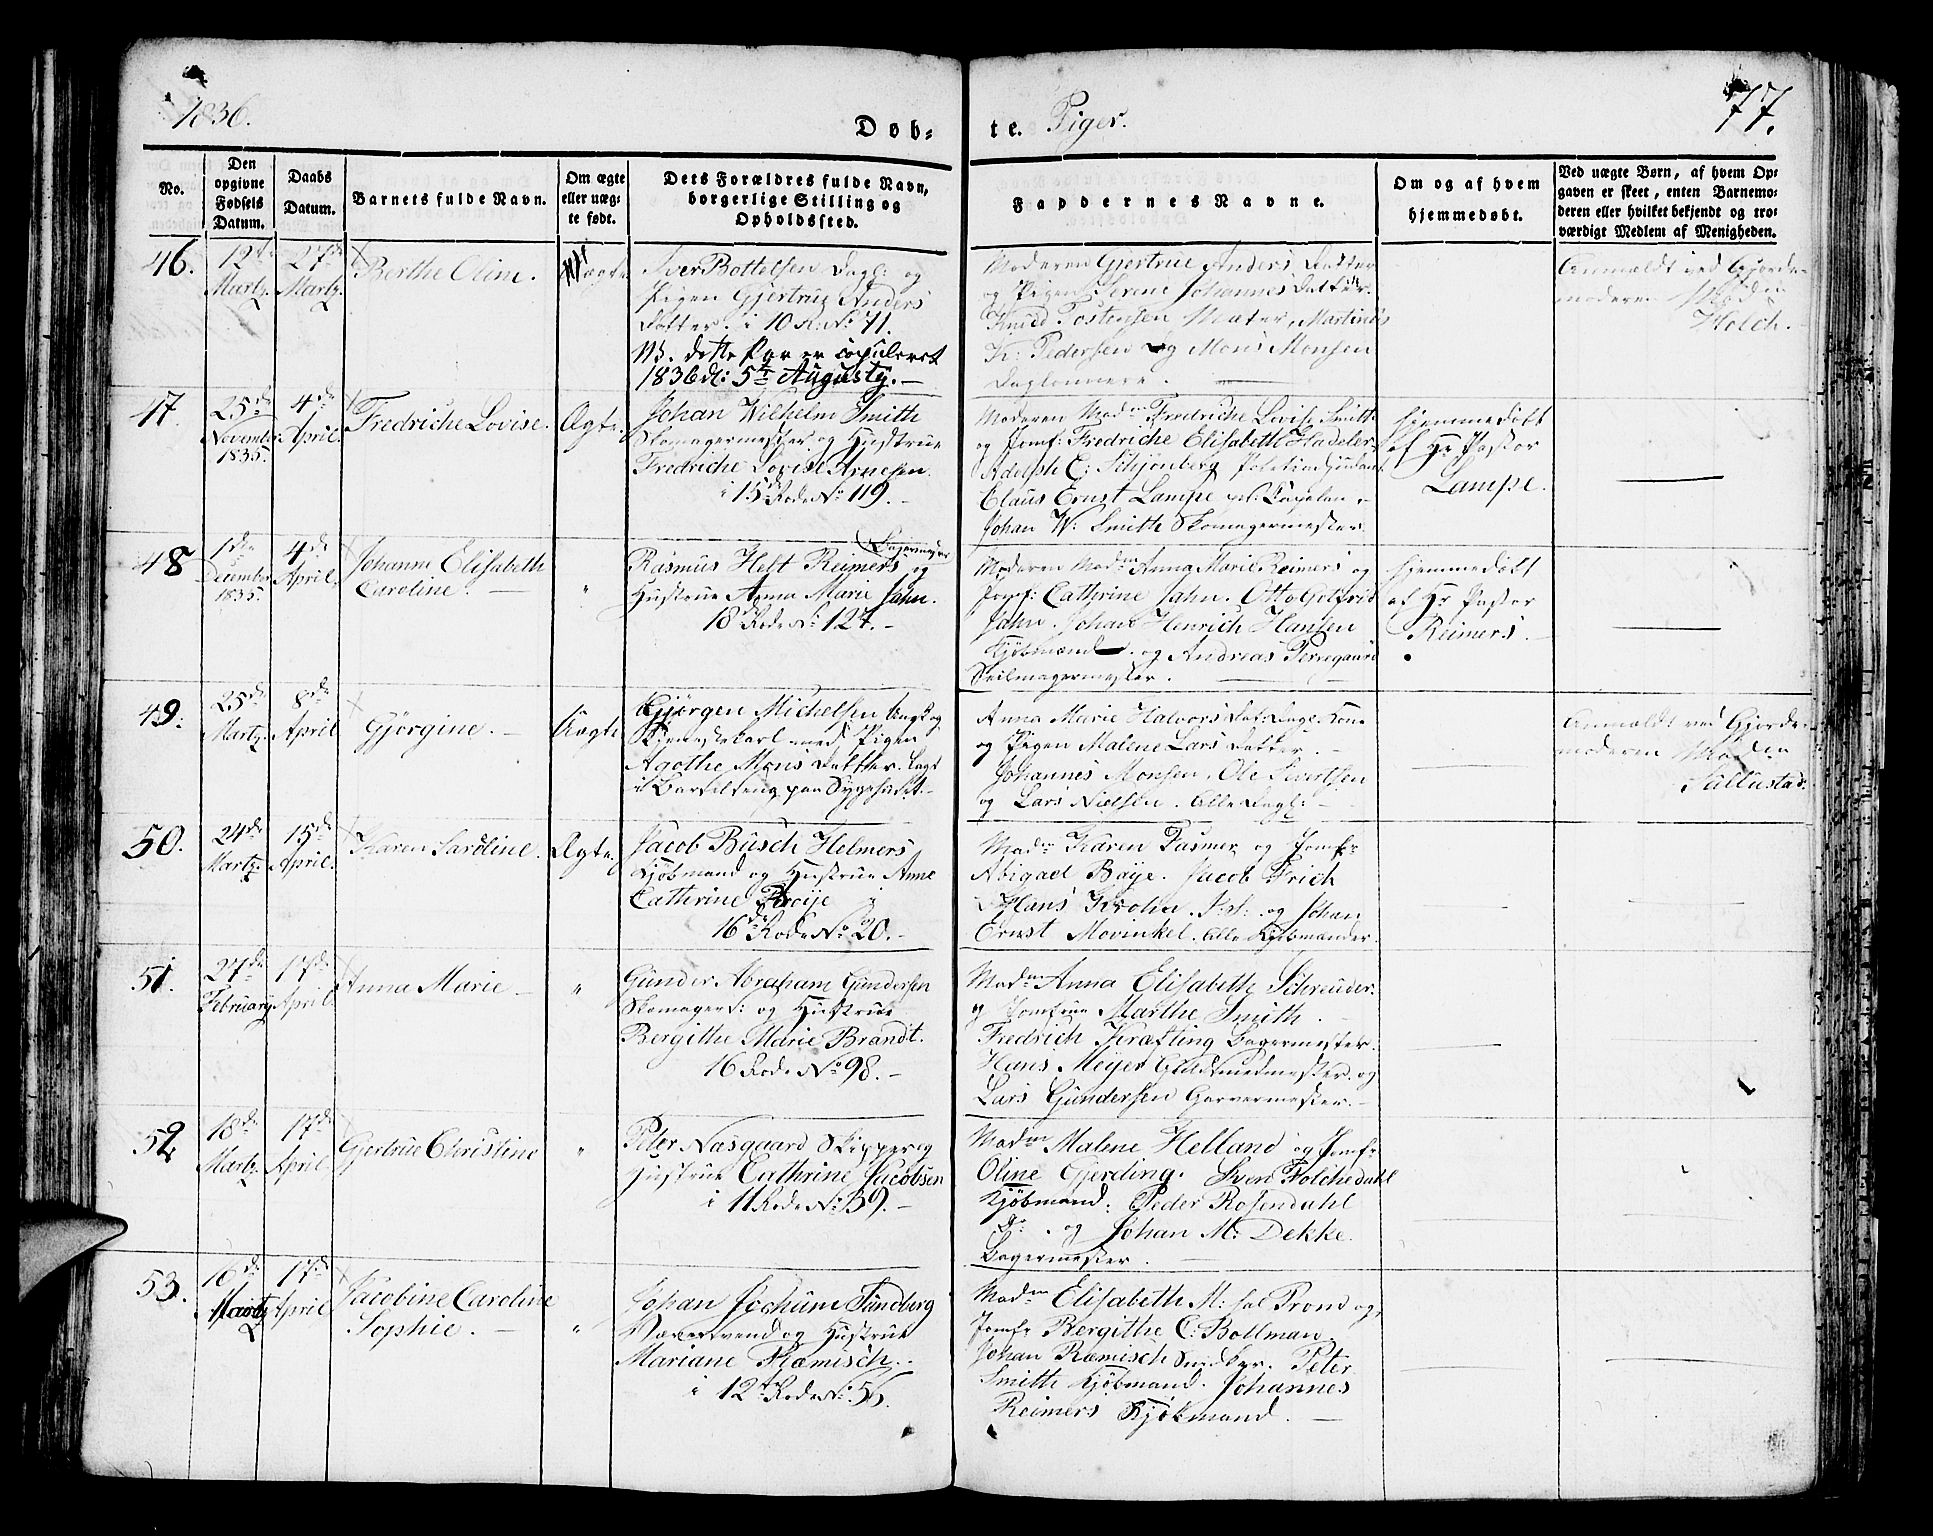 1836.
77.
Døb-
te. Piger.
No.
Den opgivne Fødsels Datum.
Daabs Datum.
Barnets fulde Navn.
Om ægte eller uæg-te født.
Dets Forældres fulde Navn, borgerlige Stilling og Opholdssted.
Faddernes Navne.
Om og af hvem hjemmedøbt.
Ved uægte Børn, af hvem Op-
gaven er skeet, enten Barnemo-
deren eller hvilket bekjendt og tro-
værdigt Medlem af Menigheden.
46.
12te Martz.
27de Martz.
Berthe Oline.
Uægte
Iver Bottelsen Dagl: og
Pigen Gjertrue Anders
Datter. i 10 R. No 71.
NB. dette Par er copuleret
1836 d: 5te Augusty.
Moderen Gjertrue Anders Datter
og Pigen Serene Johannes Datter.
Knud Tostensen Martinus
K: Pedersen og Mons Monsen
Daglønnere.
Anmeldt ved Gjorde-
moderen Mad
Holch.
47.
25de November 1835.
4de April.
Fredriche Lovise.
Ægte.
Johan Wilhelm Smith
Skomagermester og Hustrue
Fredriche Lovise Arnesen.
i 15de Rode No 119.
Moderen Madm Fredriche Lovise Smith
og Jomf: Fredriche Elisabeth Hadeler
Adolph C: Schjønberg
Claus Ernst Lampe
Johan W: Smith Skomagermester.
hjemmedøbt
af Hr Pastor
Lampe.
48
1de December 1835.
4de April.
Johanne Elisabeth
Caroline.
"
Rasmus Heft Reimers Bagermester og
Hustrue Anna Marie Jahn.
18de Rode No 124.
Moderen Madm Anna Marie Reimers og
Jomf: Cathrine Jahn. Otto Gotfrid
Jahn. Johan Henrich Hansen
Kjøbmænd. og Andreas Perregaard
Seilmagermester.
hjemmedøbt
af Hr Pastor
Reimers.
49.
25de Martz.
8de April
Gjørgine.
Uægte
Gjørgen Michelsen Ungk: og
Tjenestekarl med Pigen
Agothe Mons Datter. Lagt
i Barselseng paa Sygehuset.
Anna Marie Halvors Dat: Dagl: Kone
og Pigen Malene Lars Datter.
Johannes Monsen. Ole Sivertsen
og Lars Nielsen. Alle Dagl:
Anmeldt ved Gjorde-
moderen Mad
Sallustad.
50.
24de Martz.
15de April.
Karen Caroline.
Ægte.
Jacob Busch Helmers
Kjøbmand og Hustrue Anne
Cathrine Broije i
16de Rode No 20.
Madm Karen Fasmer og Jomfr
Abigael Baije. Jacob Frich
Hans Krohn. og Johan
Ernst Movinkel. Alle Kjøbmænder.
51.
27de February
17de April.
Anna Marie
"
Gunder Abraham Gundersen
Skomagers: og Hustrue
Bergithe Marie Brandt.
16 Rode No 98.
Madm Anna Elisabeth Schreuder.
og Jomfrue Marthe Smith.
Fredrich Krafting Bagermester.
Hans Meyer Guldsmedmester. og
Lars Gundersen Garvermester.
52
18de Martz.
17de April.
Gjertrue Christine
"
Peter Nasgaard Skipper og
Hustrue Cathrine Jacobsen
i 11 Rode No 39.
Madm Malene Helland og Jomfr
Oline Gjerding. Sverd Folchedahl
Kjøbmand. Peder Rosendahl
Do. og Johan M: Dekke.
Bagermester.
53.
16de Martz
17de April
Jacobine Caroline
Sophie.
"
Johan Jochum Sundberg
Væversvend og Hustrue
Mariane Ræmisch.
i 12te Rode No. 56.
Madm Elisabeth M: sal Trond og,
Jomfr Bergithe C: Bollman.
Johan Ræmisch Snidker. Peter
Smith Kjøbmand. Johannes
Reimers Kjøbmand.